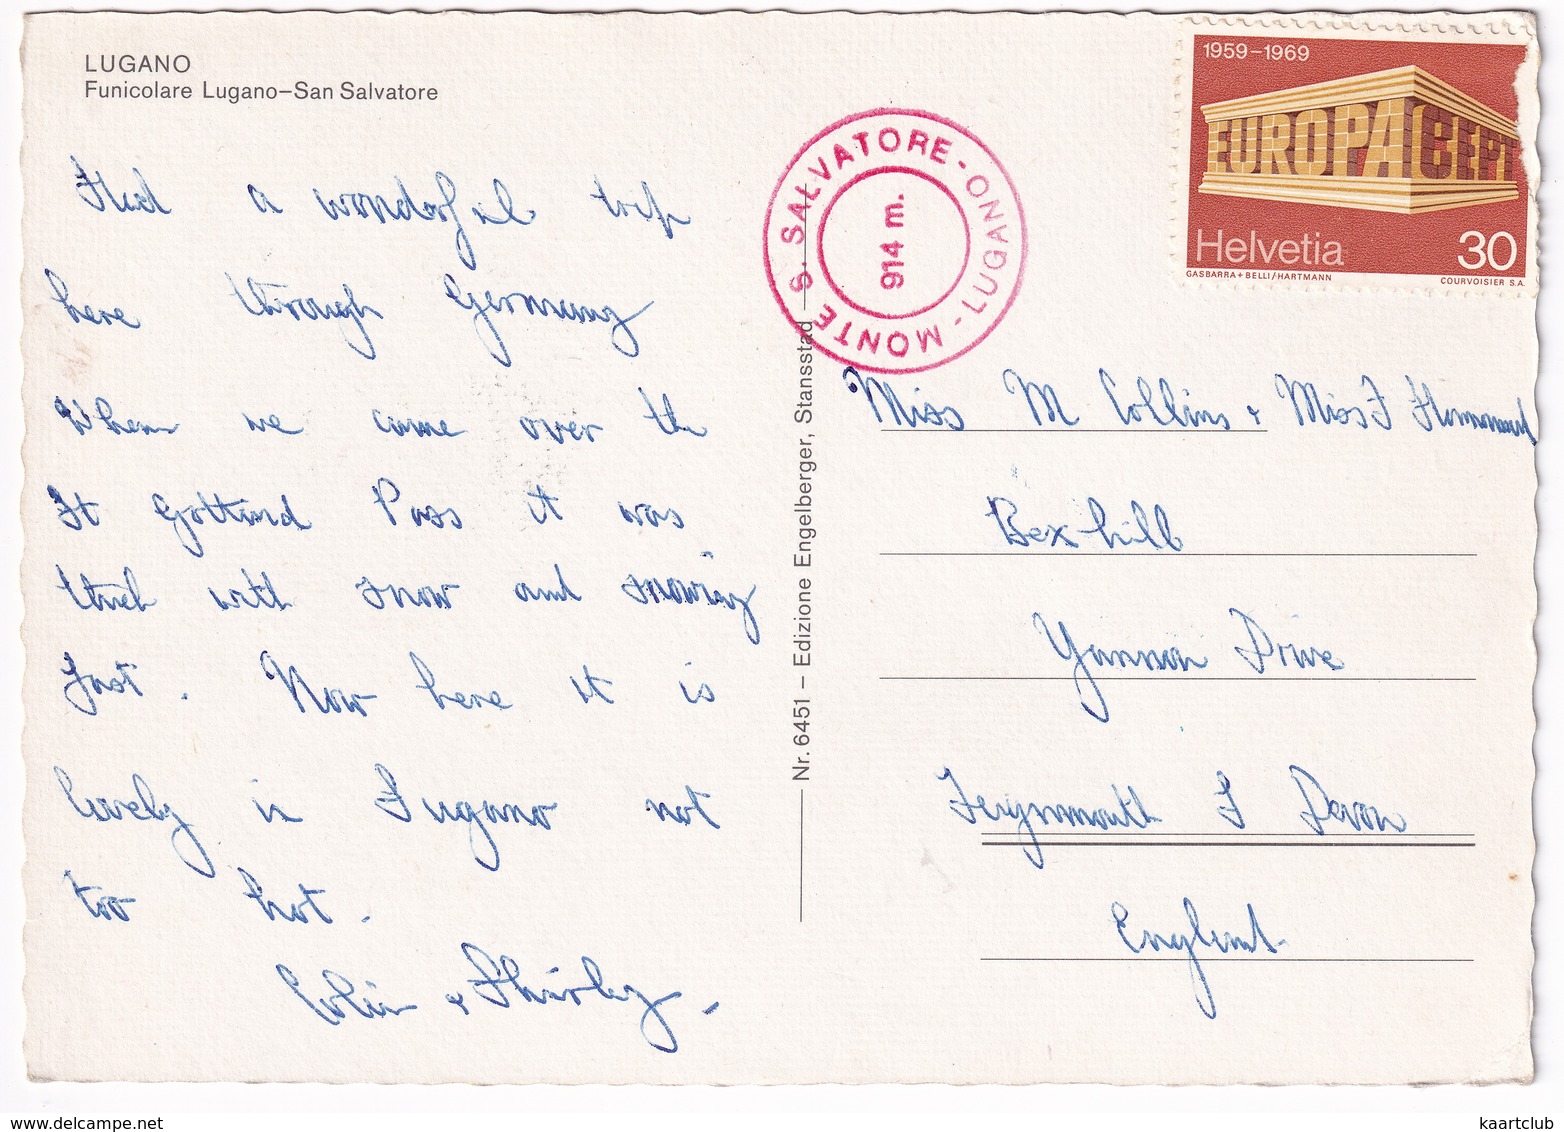 LUGANO
Funicolare Lugano–San Salvatore
Had a wonderful trip
here through Germany
When we came over the
St Gottard Pass it was
thick with snow and snowing
fast. Now here it is
lovely in Lugano not
too hot.
Colin & Shirley.
Nr. 6451 – Edizione Engelberger, Stansstad
MONTE S. SALVATORE - LUGANO -
914 m.
1959–1969
EUROPA CEPT
Helvetia 30
GASBARRA + BELLI/HARTMANN COURVOISIER S.A.
Miss M Collins & Miss F Hammond
Bexhill
Yannon Drive
Teignmouth S Devon
England
www.delcampe.net
kaartclub